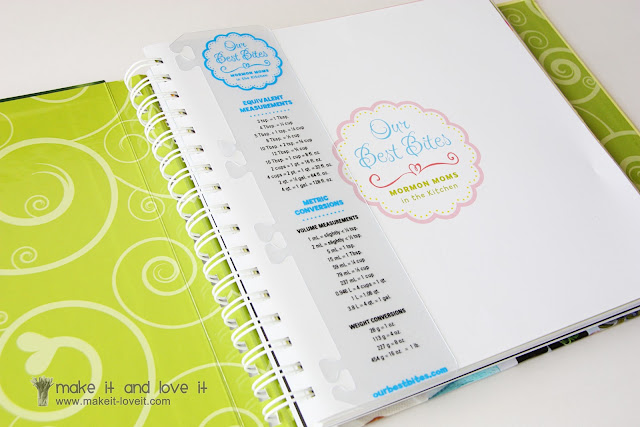 Our
Best Bites
MORMON MOMS
in the Kitchen
EQUIVALENT
MEASUREMENTS
3 tsp = 1 Tbsp.
4 Tbsp. = ¼ cup
5 Tbsp. + 1 tsp. = ⅓ cup
8 Tbsp. = ½ cup
10 Tbsp. + 2 tsp. = ⅔ cup
12 Tbsp. = ¾ cup
16 Tbsp. = 1 cup = 8 fl. oz.
2 cups = 1 pt. = 16 fl. oz.
4 cups = 2 pt. = 1 qt. = 32 fl. oz.
2 qt. = ½ gal. = 64 fl. oz.
4 qt. = 1 gal. = 128 fl. oz.
METRIC
CONVERSIONS
VOLUME MEASUREMENTS
1 mL = slightly < ¼ tsp.
2 mL = slightly < ½ tsp.
5 mL = 1 tsp.
15 mL = 1 Tbsp.
59 mL = ¼ cup
79 mL = ⅓ cup
237 mL = 1 cup
0.946 L = 4 cups = 1 qt.
1 L = 1.06 qt.
3.8 L = 4 qt. = 1 gal.
WEIGHT CONVERSIONS
28 g = 1 oz.
113 g = 4 oz.
227 g = 8 oz.
454 g = 16 oz. = 1 lb.
ourbestbites.com
Our
Best Bites
MORMON MOMS
in the Kitchen
make it and love it
www.makeit-loveit.com